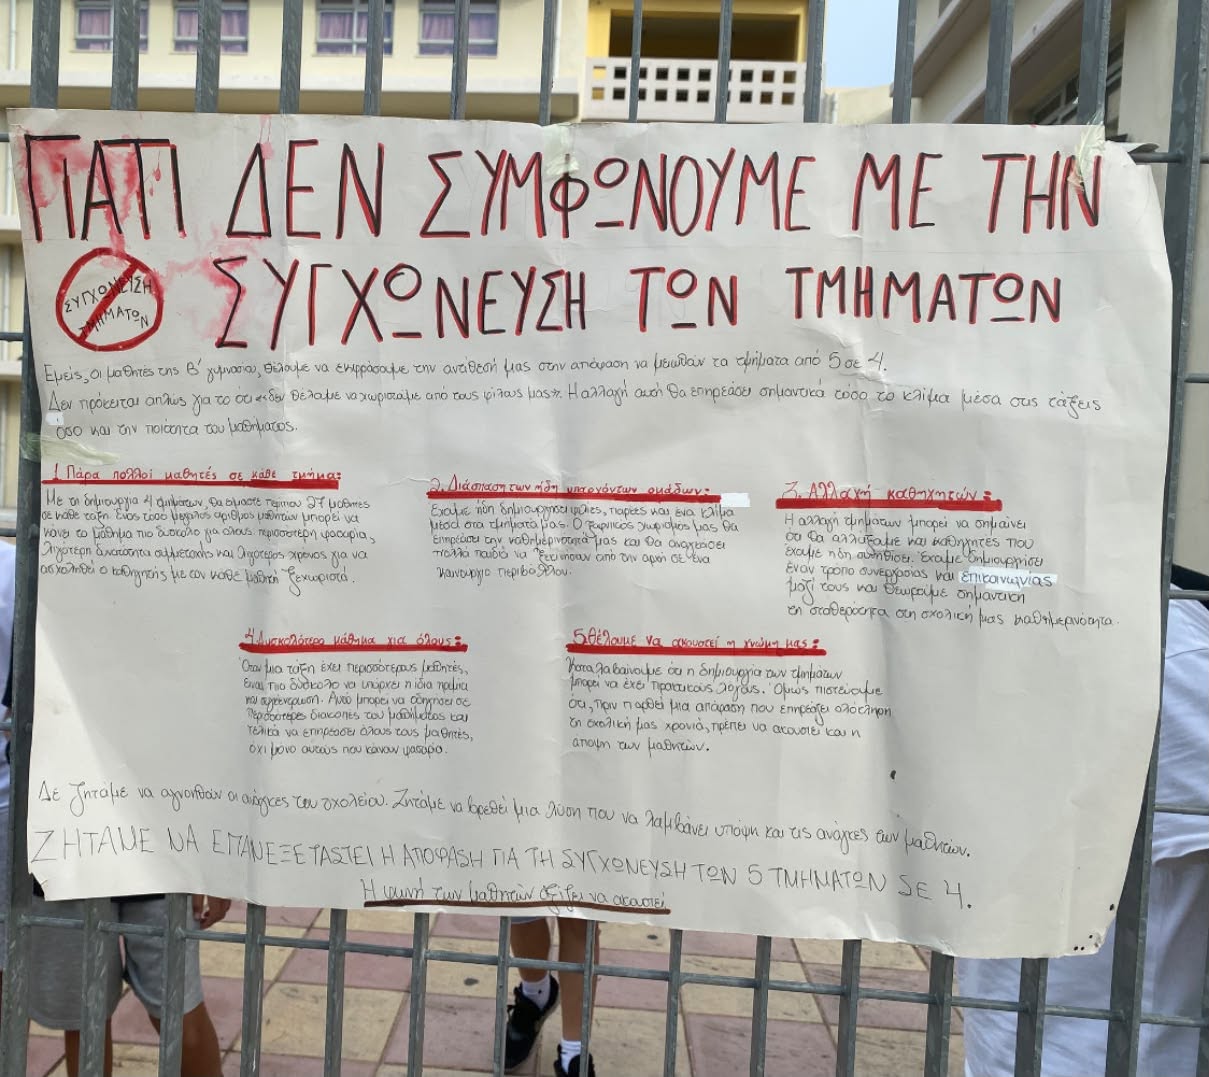 ΓΙΑΤΙ ΔΕΝ ΣΥΜΦΩΝΟΥΜΕ ΜΕ ΤΗΝ
ΣΥΓΧΩΝΕΥΣΗ ΤΩΝ ΤΜΗΜΑΤΩΝ
ΣΥΓΧΩΝΕΥΣΗ
ΤΜΗΜΑΤΩΝ
Εμείς, οι μαθητές της Β' γυμνασίου, θέλουμε να εκφράσουμε την αντίθεσή μας στην απόφαση να μειωθούν τα τμήματα από 5 σε 4.
Δεν πρόκειται απλώς για το ότι «δεν θέλουμε να χωριστούμε από τους φίλους μας». Η αλλαγή αυτή θα επηρεάσει σημαντικά τόσο το κλίμα μέσα στις τάξεις
όσο και την ποιότητα του μαθήματος.
1 Πάρα πολλοί μαθητές σε κάθε τμήμα:
Με τη δημιουργία 4 τμημάτων, θα είμαστε περίπου 27 μαθητές
σε κάθε τάξη. Ένας τόσο μεγάλος αριθμός μαθητών μπορεί να
κάνει το μάθημα πιο δύσκολο για όλους: περισσότερη φασαρία,
λιγότερη δυνατότητα συμμετοχής και λιγότερος χρόνος για να
ασχοληθεί ο καθηγητής με τον κάθε μαθητή ξεχωριστά.
2. Διάσπαση των ήδη υπαρχόντων ομάδων:
Έχουμε ήδη δημιουργήσει φιλίες, παρέες και ένα κλίμα
μέσα στα τμήματά μας. Ο ξαφνικός χωρισμός μας θα
επηρεάσει την καθημερινότητά μας και θα αναγκάσει
πολλά παιδιά να ξεκινήσουν από την αρχή σε ένα
καινούργιο περιβάλλον.
3. Αλλαγή καθηγητών:
Η αλλαγή τμημάτων μπορεί να σημαίνει
ότι θα αλλάξουμε και καθηγητές που
έχουμε ήδη συνηθίσει. Έχουμε δημιουργήσει
έναν τρόπο συνεργασίας και επικοινωνίας
μαζί τους και θεωρούμε σημαντική
τη σταθερότητα στη σχολική μας καθημερινότητα.
4 Δυσκολότερο μάθημα για όλους:
Όταν μια τάξη έχει περισσότερους μαθητές,
είναι πιο δύσκολο να υπάρχει η ίδια ηρεμία
και συγκέντρωση. Αυτό μπορεί να οδηγήσει σε
περισσότερες διακοπές του μαθήματος και
τελικά να επηρεάσει όλους τους μαθητές,
όχι μόνο αυτούς που κάνουν φασαρία.
5 Θέλουμε να ακουστεί η γνώμη μας:
Καταλαβαίνουμε ότι η δημιουργία των τμημάτων
μπορεί να έχει πρακτικούς λόγους. Όμως πιστεύουμε
ότι, πριν παρθεί μια απόφαση που επηρεάζει ολόκληρη
τη σχολική μας χρονιά, πρέπει να ακουστεί και η
άποψη των μαθητών.
Δε ζητάμε να αγνοηθούν οι ανάγκες του σχολείου. Ζητάμε να βρεθεί μια λύση που να λαμβάνει υπόψη και τις ανάγκες των μαθητών.
ΖΗΤΑΜΕ ΝΑ ΕΠΑΝΕΞΕΤΑΣΤΕΙ Η ΑΠΟΦΑΣΗ ΓΙΑ ΤΗ ΣΥΓΧΩΝΕΥΣΗ ΤΩΝ 5 ΤΜΗΜΑΤΩΝ ΣΕ 4.
Η φωνή των μαθητών αξίζει να ακουστεί